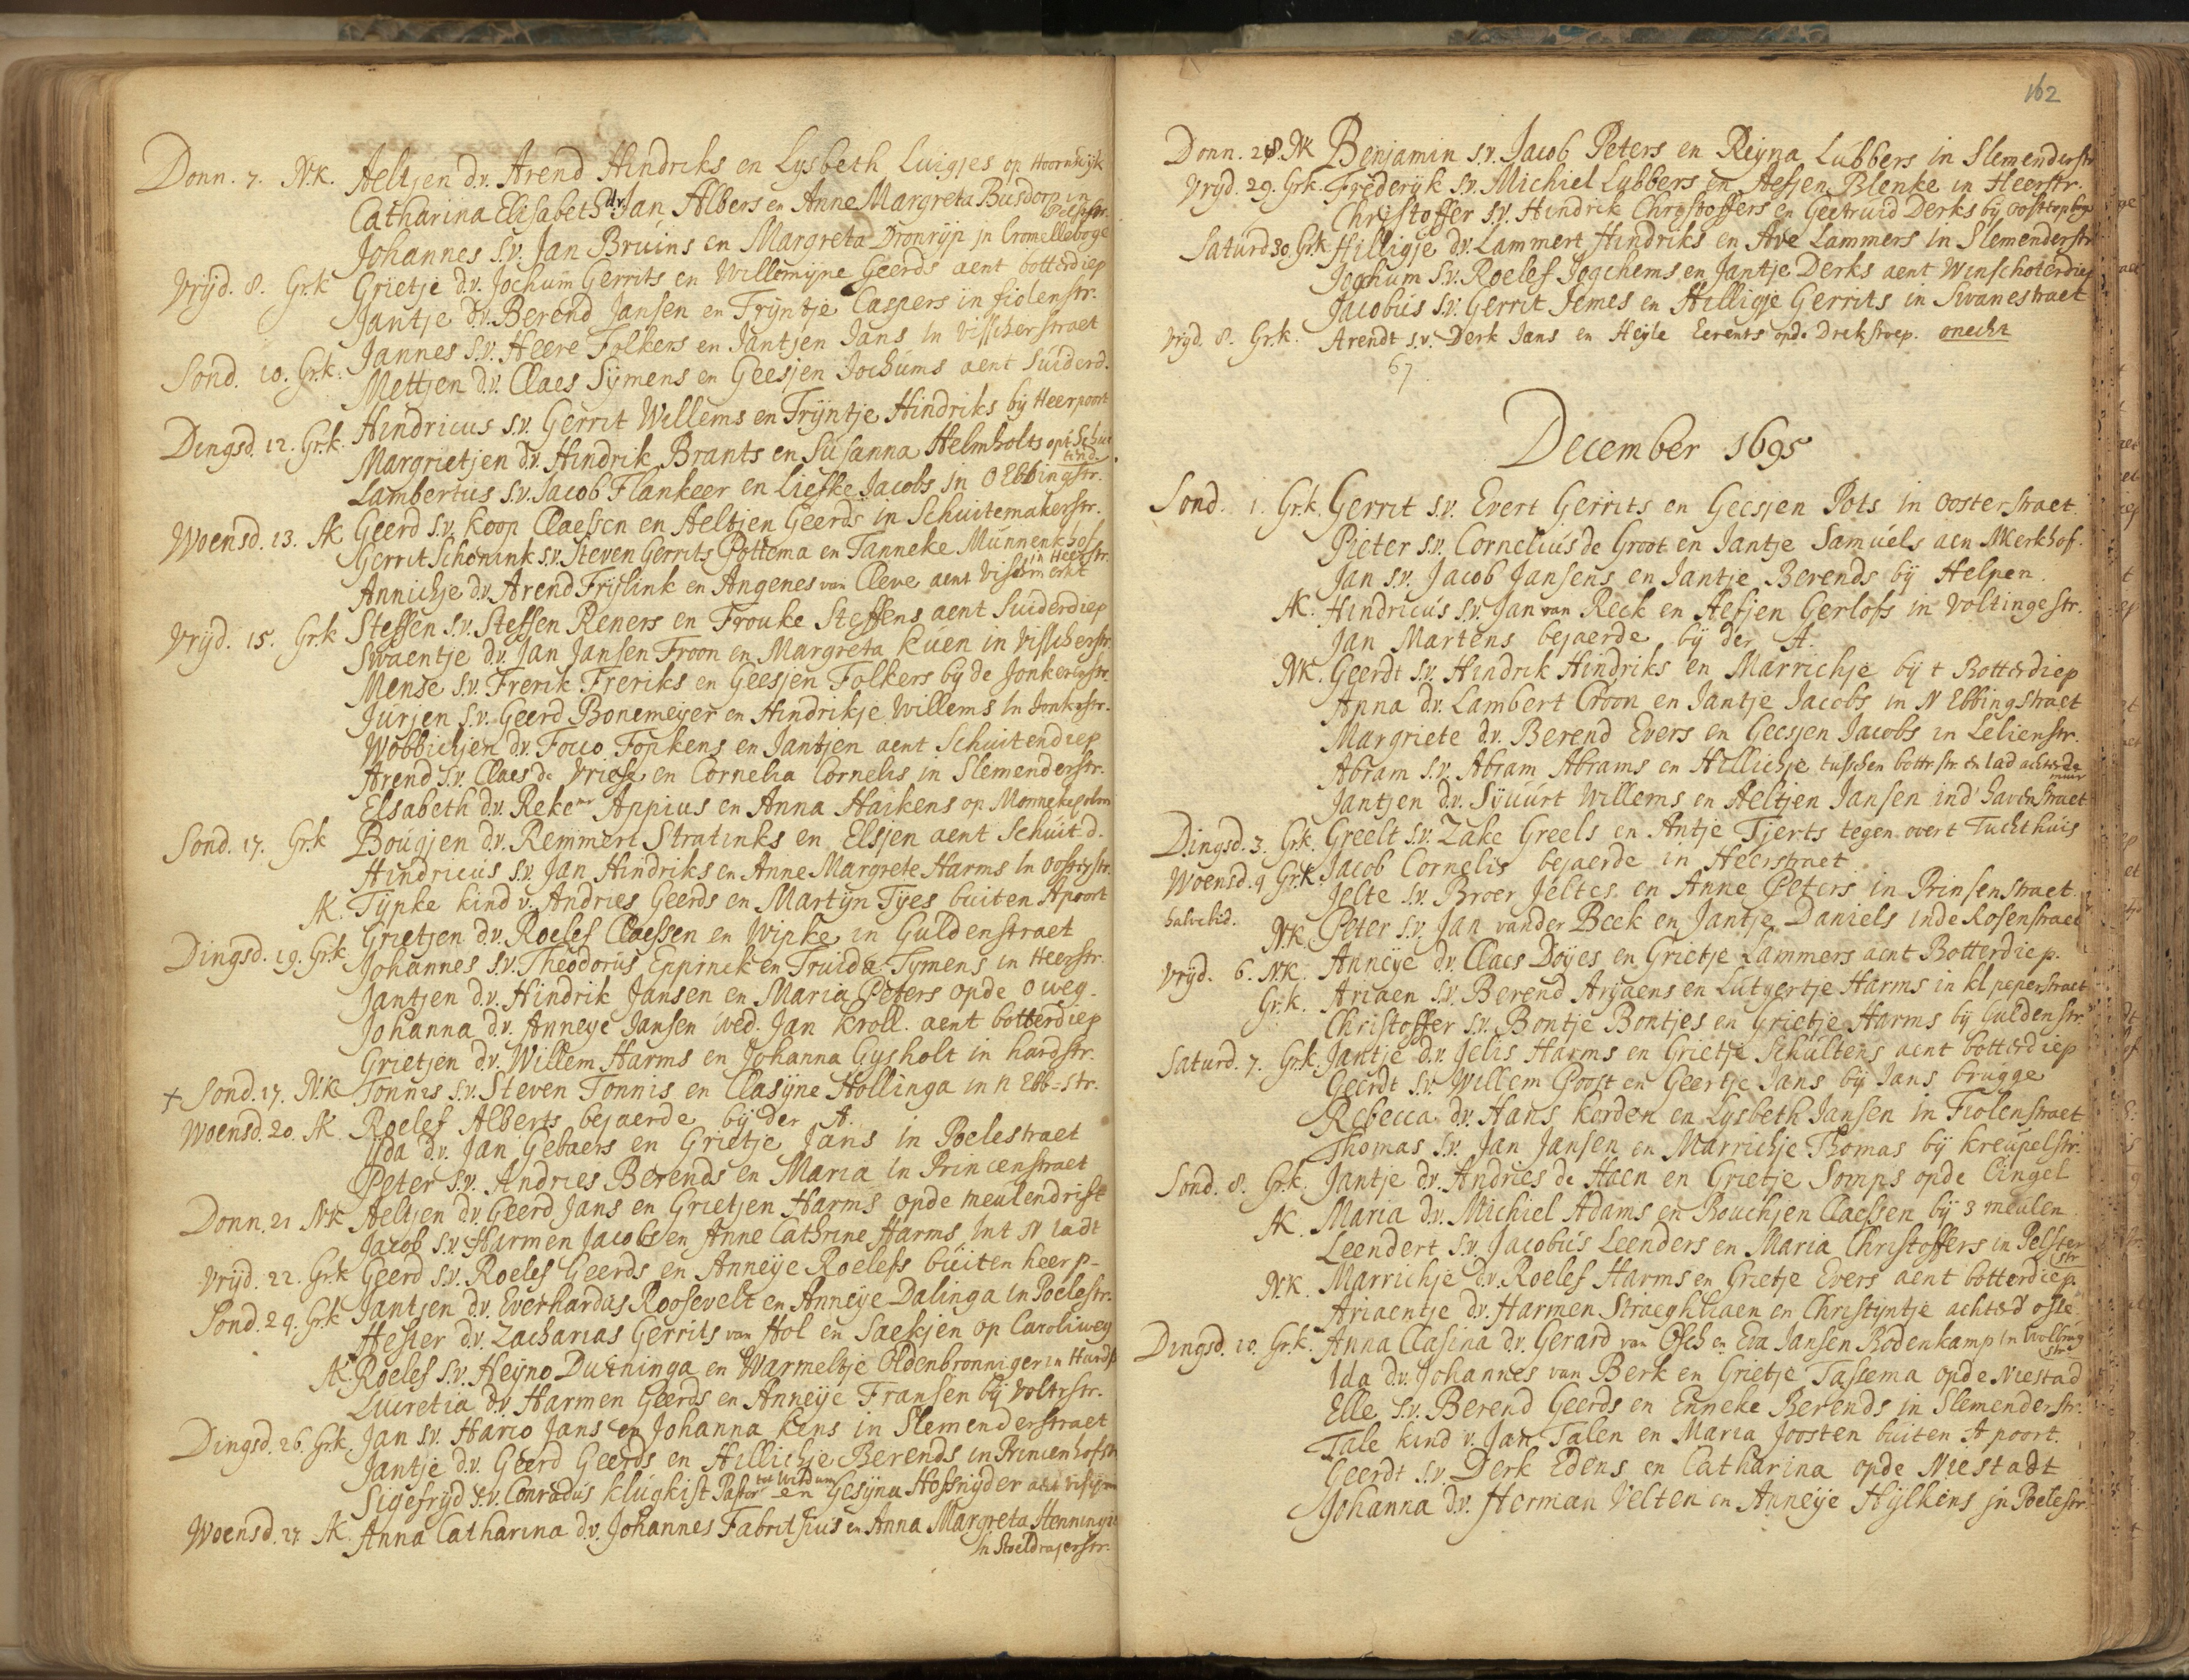 Donn. 7. N.K. Aeltjen d.v. Arend Hindriks en Lysbeth Luigjes op Hoornsdijk
Catharina Elisabeth d.v. Jan Albers en Anne Margreta Busdorp in
Pelsstr.
Johannes s.v. Jan Bruins en Margreta Dronrijp in Cromelleboge
Vrijd. 8. Gr.k Grietje d.v. Jochum Gerrits en Willemijne Geerds aent botterdiep
Jantje d.v. Berend Jansen en Trijntje Caspers in fiolenstr.
Jannes s.v. Heere Folkers en Jantjen Jans in Visscherstraet
Sond. 10. Gr.k. Mettjen d.v. Claes Sijmens en Geesjen Jochums aent Suiderd.
Hindricus s.v. Gerrit Willems en Trijntje Hindriks bij Heerpoort
Dingsd. 12. Gr.k. Margrietjen d.v. Hindrik Brants en Susanna Helmholts opt Schui
tend.
Lambertus s.v. Jacob Flankeer en Liefke Jacobs in O Ebbingstr.
Woensd. 13. AK Geerd s.v. Koop Claessen en Aeltjen Geerds in Schuitemakerstr.
Gerrit Schonink s.v. Steven Gerrits Pottema en Tanneke Munnenkhof
in Heerstr.
Annichje d.v. Arend Frijlink en Angenes van Cleve aent Vischmerkt
Vrijd. 15. Gr.k Steffen s.v. Steffen Reners en Frouke Steffens aent Suiderdiep
Swaentje d.v. Jan Jansen Froon en Margreta Kuen in Visscherstr.
Mense s.v. Frerik Freriks en Geesjen Folkers bij de Jonkerstr.
Jurjen s.v. Geerd Bonemeijer en Hindrikje Willems in Jonkerstr.
Wobbichjen d.v. Focco Fopkens en Jantjen aent Schuitendiep
Arend s.v. Claes de Vriese en Cornelia Cornelis in Slemenderstr.
Elsabeth d.v. Reke mr Appius en Anna Haikens op Monnekeholm
Sond. 17. Gr.k Bougjen d.v. Remmert Stratinks en Elsjen aent Schuitd.
Hindricus s.v. Jan Hindriks en Anne Margrete Harms in Oosterstr.
AK. Tijpke kind v. Andries Geerds en Martijn Tijes buiten Apoort
Grietjen d.v. Roelef Claessen en Wipke in Guldenstraet
Dingsd. 19. Gr.k Johannes s.v. Theodorus Eppinck en Truida Tymens in Heerstr.
Jantjen d.v. Hindrik Jansen en Maria Peters opde O weg.
Johanna d.v. Anneye Jansen wed. Jan Kroll. aent botterdiep
Grietjen d.v. Willem Harms en Johanna Gysholt in hardstr.
+ Sond. 17. N.K Tonnis s.v. Steven Tonnis en Clasyne Hollinga in n Ebb-str.
Woensd. 20. AK. Roelef Alberts bejaerde bij der A.
Ida d.v. Jan Gebaers en Grietje Jans in Poelestraet
Peter s.v. Andries Berends en Maria in Princenstraet
Donn. 21 N.K Aeltjen d.v. Geerd Jans en Grietjen Harms opde meulendrift
Jacob s.v. Harmen Jacobs en Anne Cathrine Harms int N ladt
Vrijd. 22. Gr.k Geerd s.v. Roelef Geerds en Anneye Roelefs buiten heerp-
Sond. 24. Gr.k Jantjen d.v. Everhardus Roosevelt en Anneye Dalinga in Poelestr.
Hester d.v. Zacharias Gerrits van Hol en Saekjen op Caroliweg
AK. Roelef s.v. Heyno Duininga en Warmeltje Oldenbronniger in Hardst
Lucretia d.v. Harmen Geerds en Anneye Fransen bij Voltrstr.
Dingsd. 26. Gr.k. Jan s.v. Harco Jans en Johanna Kens in Slemenderstraet
Jantje d.v. Geerd Geerds en Hillichje Berends in Princenhofstr
Sigefryd s.v. Conradus Klugkist Pastor tot Witdum en Gesyna Hofsnyder
Woensd. 27 AK. Anna Catharina d.v. Johannes Fabritsius en Anna Margreta Henninges
in Stoeldrajerstr.
162
Donn. 28. NK Benjamin s.v. Jacob Peters en Reyna Lubbers in Slemenderstr
Vrijd. 29. Gr.k. Frederyk s.v. Michiel Lubbers en Aefjen Blenke in Heerstr.
Christoffer s.v. Hindrik Christoffers en Geertruid Derks bij
Saturd 30. Gr.k Hilligje d.v. Lammert Hindriks en Ave Lammers in Slemenderstr
Jochum s.v. Roelef Jogchems en Jantje Derks aent Winschoterdiep
Jacobus s.v. Gerrit Jemes en Hilligje Gerrits in Swanestraet
Vrijd. 8. Gr.k. Arendt s.v. Derk Jans en Heyle Eerents opde Drekstoep. onecht
67
December 1695
Sond. 1. Gr.k. Gerrit s.v. Evert Gerrits en Geesjen Pots in Oosterstraet
Pieter s.v. Cornelius de Groot en Jantje Samuels aen AKerkhof.
Jan s.v. Jacob Jansens en Jantje Berends bij Helpen.
AK. Hindricus s.v. Jan van Reck en Aefjen Gerlofs in Voltingestr.
Jan Martens bejaerde bij der A.
NK. Geerdt s.v. Hindrik Hindriks en Marrichje bij t Botterdiep
Anna d.v. Lambert Croon en Jantje Jacobs in N Ebbingstraet
Margriete d.v. Berend Evers en Geesjen Jacobs in Lelienstr.
Abram s.v. Abram Abrams en Hillichje tusschen bottr str en lad achter de
muur
Jantjen d.v. Syuurt Willems en Aeltjen Jansen ind' havenstraet
Dingsd. 3. Gr.k. Greelt s.v. Zake Greels en Antje Tjerts tegen overt Tuchthuis
Woensd. 4 Gr.K. Jacob Cornelis bejaerde in Heerstraet
Jelte s.v. Broer Jeltes en Anne Peters in Prinsenstraet.
halvebid. N.K. Peter s.v. Jan vander Beek en Jantje Daniels inde Rosenstraet
Vrijd. 6. N.K. Anneye d.v. Claes Doyes en Grietje Lammers aent Botterdiep.
Gr.k. Ariaen s.v. Berend Aryaens en Lutgertje Harms in kl peperstraet
Christoffer s.v. Bontje Bontjes en Grietje Harms bij Guldenstr.
Saturd. 7. Gr.k. Jantje d.v. Jelis Harms en Grietje Schultens aent botterdiep
Geerdt s.v. Willem Poost en Geertje Jans bij Jans brugge
Rebecca d.v. Hans Korden en Lysbeth Jansen in Fiolenstraet
Thomas s.v. Jan Jansen en Marrichje Thomas bij Kreupelstr.
Sond. 8. Gr.k. Jantje d.v. Andries de Haen en Grietje Somps opde Cingel
AK. Maria d.v. Michiel Adams en Bouchjen Claessen bij 3 meulen
Leendert s.v. Jacobus Leenders en Maria Christoffers in Pelster
str
N.K. Marrichje d.v. Roelef Harms en Grietje Evers aent botterdiep.
Ariaentje d.v. Harmen Straeghthaen en Christyntje
Dingsd. 10. Gr.k. Anna Clasina d.v. Gerard van Osch en Eva Jansen Bodenkamp in
str
Ida d.v. Johannes van Berk en Grietje Tassema opde Niestad
Elle s.v. Berend Geerds en Enneke Berends in Slemenderstr.
Tale kind v. Jan Talen en Maria Joosten buiten A poort.
Geerdt s.v. Derk Edens en Catharina opde Niestadt
Johanna d.v. Herman Velten en Anneye Hylkens in Poelestr